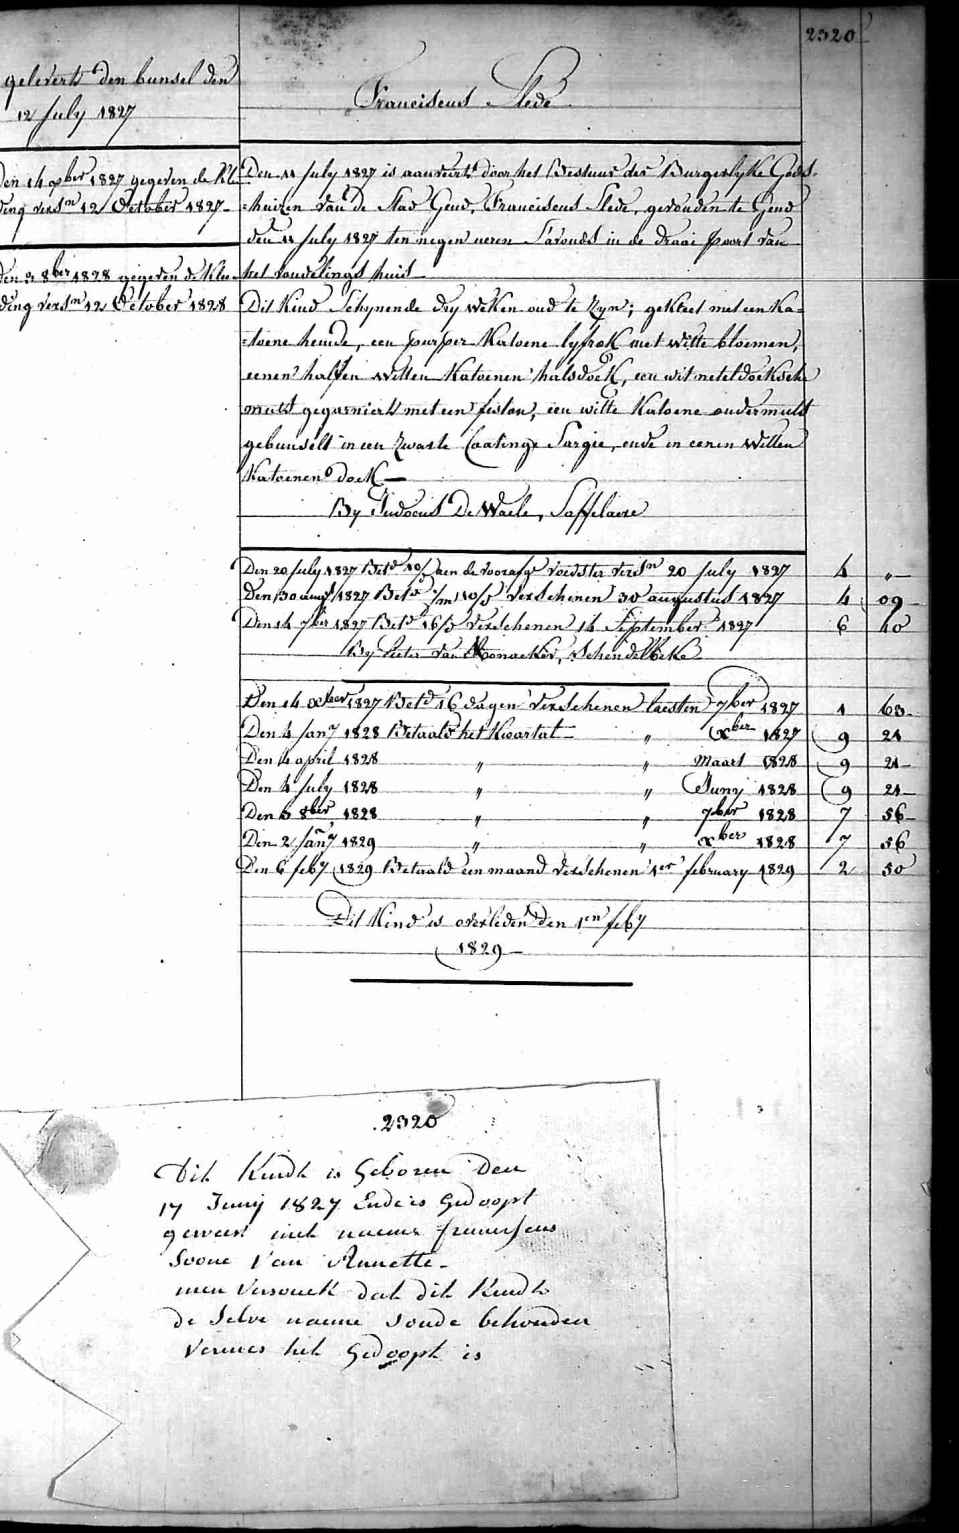 2320
gelevert den bunsel den
12 July 1827
Franciscus Slede
Den 14 8ber 1827 gegeven de Kle
ding versn 12 October 1827
Den 3 8ber 1828 gegeven de Klee
ding versn 12 October 1828
Den 11 July 1827 is aanveirt door het Bestuur der Burgerlyke Gods-
=huizen van de Stad Gend, Franciscus Slede, gevonden te Gend
den 11 July 1827 ten negen ueren S'avonds in de draai poort van
het vondelings huis
Dit Kind Schynende dry weken oud te zyn; gekleet met een Ka=
=toene hemde, een purper Katoene lyfrok met witte bloemen,
eenen halven Witten Katoenen halsdoek, een wit neteldoeksche
muts gegarniert met een feston, een witte Katoene ondermuts
gebunselt in een Zwarte Sargie, ende in eenen Witten
Katoenen doek
By Judocus De Waele, Saffelaere
Den 20 July 1827 Betd 10/ aen de voorafge voedster versn 20 July 1827 4 "
Den 30 augt 1827 Betd 1/m 10/ verschenen 30 augustus 1827 4 09
Den 14 7ber 1827 Betd 16/ verschenen 14 September 1827 6 40
By Pieter van, Schendelbeke
Den 14 8ber 1827 Betd 16 dagen verschenen laesten 7ber 1827 1 63
Den 4 Jany 1828 Betaald het Kwartal " xber 1827 9 21
Den 4 april 1828 " " Maart 1828 9 21
Den 4 July 1828 " " Juny 1828 9 21
Den 3 8ber 1828 " " 7ber 1828 7 56
Den 2 Jany 1829 " " xber 1828 7 56
Den 6 feby 1829 Betaald een maand verschenen 1er february 1829 2 50
Dit Kind is overleden den 1en feby
1829
2320
Dit Kindt is Geboren Den
17 Junij 1827 Ende is Gedoopt
geweest met naeme franciscus
Soone Van Annette
men Versouckt dat dit Kindt
de Selve naeme soude behouden
Vermits hit Gedoopt is